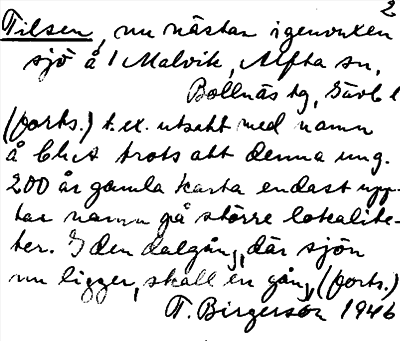 2
Tilsen, nu nästan igenvuxen
sjö å 1 Malvik, Alfta sn,
Bollnäs tg, Gävl. l
(forts.) t.ex. utsatt med namn
å trots att denna ung.
200 år gamla karta endast upp-
tar namn på större lokalite-
ter. I den dalgång, där sjön
nu ligger, skall en gång, (forts.)
T. Birgerson 1946